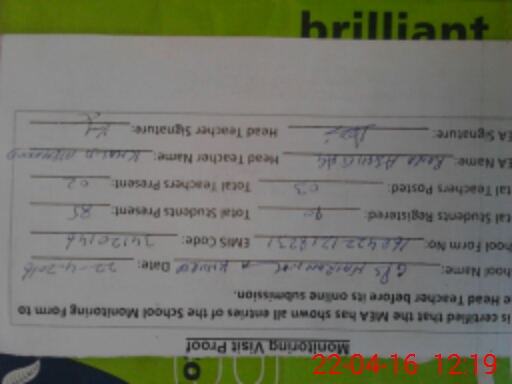 brilliant
Monitoring Visit Proof
is certified that the MEA has shown all entries of the School Monitoring Form to
e Head Teacher before its online submission.
hool Name: GPS Date: 22-4-2016
hool Form No: EMIS Code: 34120146
tal Students Registered: 90 Total Students Present: 85
tal Teachers Posted: 03 Total Teachers Present: 02
EA Name: Head Teacher Name:
EA Signature: Head Teacher Signature:
22-04-16 12:19